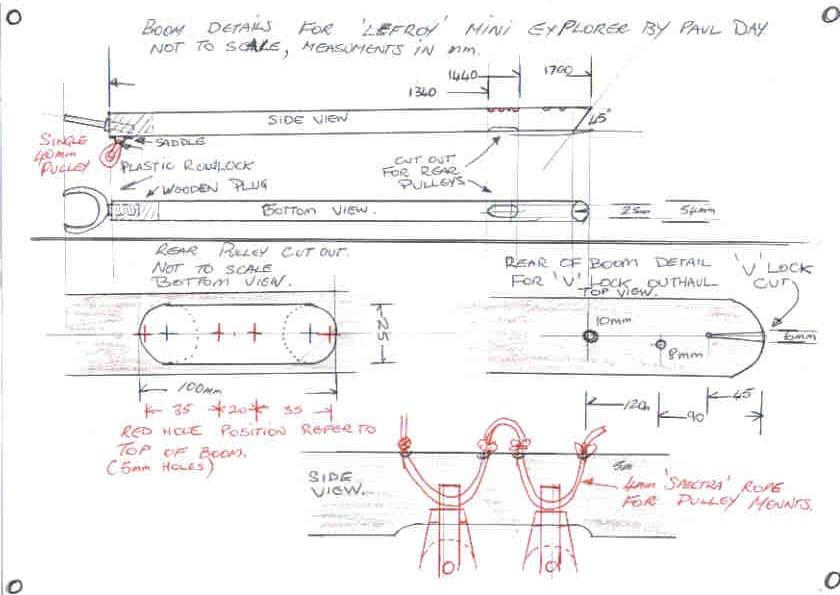 BOOM DETAILS FOR 'LEFROY' MINI EXPLORER BY PAUL DAY
NOT TO SCALE, MEASUMENTS IN mm.
1440
1700
1340
SIDE VIEW
45°
SINGLE
40mm
PULLEY
SADDLE
PLASTIC ROWLOCK
WOODEN PLUG
CUT OUT
FOR REAR
PULLEYS
BOTTOM VIEW.
25mm
54mm
REAR PULLEY CUT OUT.
NOT TO SCALE
BOTTOM VIEW.
REAR OF BOOM DETAIL
FOR 'V' LOCK OUTHAUL
TOP VIEW.
'V' LOCK
CUT
25
10mm
8mm
6mm
100mm
35 20 35
120
90
45
RED HOLE POSITION REFER TO
TOP OF BOOM.
(5mm HOLES)
SIDE
VIEW.
5m
4mm 'SPECTRA' ROPE
FOR PULLEY MOUNTS.